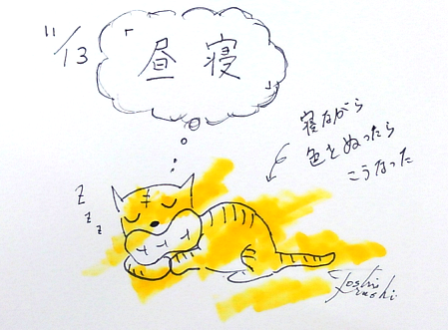 11/13
「昼寝」
寝ながら
色をぬったら
こうなった
z
z
z